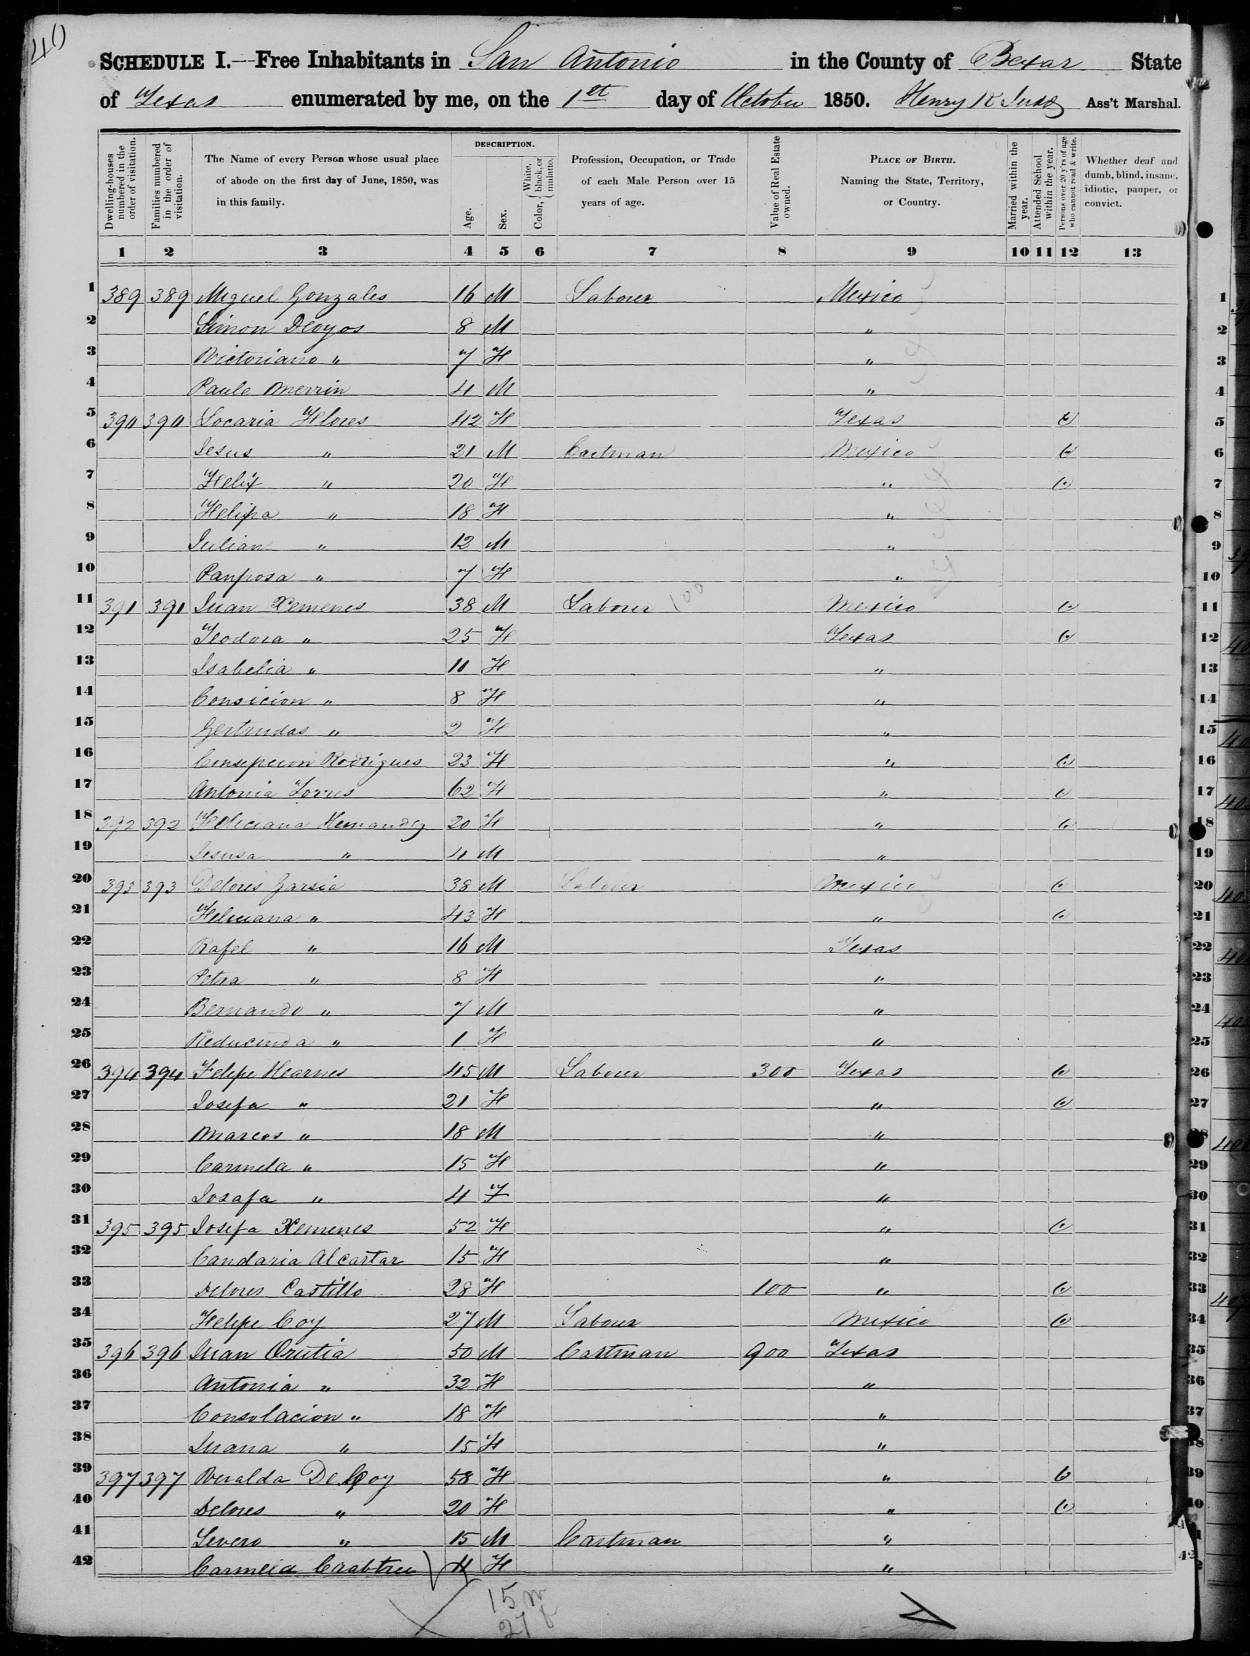 40
SCHEDULE I.—Free Inhabitants in San Antonio in the County of Bexar State
of Texas enumerated by me, on the 1st day of October 1850. Henry K Judd Ass't Marshal.
Dwelling-houses numbered in the order of visitation.
Families numbered in the order of visitation.
The Name of every Person whose usual place of abode on the first day of June, 1850, was in this family.
DESCRIPTION.
Age.
Sex.
Color, White, black, or mulatto.
Profession, Occupation, or Trade of each Male Person over 15 years of age.
Value of Real Estate owned.
PLACE OF BIRTH. Naming the State, Territory, or Country.
Married within the year.
Attended School within the year.
Persons over 20 y'rs of age who cannot read & write.
Whether deaf and dumb, blind, insane, idiotic, pauper, or convict.
1 2 3 4 5 6 7 8 9 10 11 12 13
1 389 389 Miguel Gonzales 16 M Labourer Mexico 1
2 Simon Deoyos 8 M " 2
3 Victoriano " 7 F " 3
4 Paulo Merrin 4 M " 4
5 390 390 Locaria Flores 42 F Texas 5
6 Jesus " 21 M Cartman Mexico 6
7 Felix " 20 F " 7
8 Felipa " 18 F " 8
9 Julian " 12 M " 9
10 Panposa " 7 F " 10
11 391 391 Juan Xemenes 38 M Labourer 100 Mexico 11
12 Teodora " 25 F Texas 12
13 Isabelia " 11 F " 13
14 Consicion " 8 F " 14
15 Gertrudas " 2 F " 15
16 Consepcion Rodrigues 23 F " 16
17 Antonia Torres 62 F " 17
18 392 392 Feliciana Hernandez 20 F " 18
19 Jesusa " 4 M " 19
20 393 393 Delores Garsia 38 M Labour Mexico 20
21 Feliciana " 43 F " 21
22 Rafel " 16 M Texas 22
23 Petra " 8 F " 23
24 Bernando " 7 M " 24
25 Reducinda " 1 F " 25
26 394 394 Felipe Hearnes 45 M Labour 300 Texas 26
27 Josefa " 21 F " 27
28 Marcos " 18 M " 28
29 Carmela " 15 F " 29
30 Josafa " 4 F " 30
31 395 395 Josefa Xemenes 52 F " 31
32 Candaria Alcartar 15 F " 32
33 Delores Castillo 28 F 100 " 33
34 Felipe Coy 27 M Labour Mexico 34
35 396 396 Juan Orutia 50 M Cartman 900 Texas 35
36 Antonia " 32 F " 36
37 Consolacion " 18 F " 37
38 Juana " 15 F " 38
39 397 397 Veralda De Coy 58 F " 39
40 Delores " 20 F " 40
41 Severo " 15 M Cartman " 41
42 Carmela Crabtree 4 F " 42
15 m
27 f